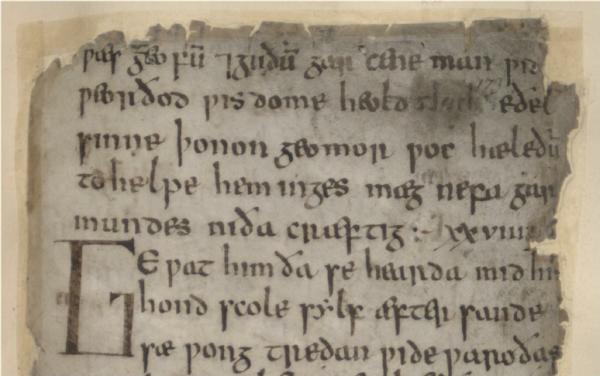 ƿæs geofū ⁊ guðū gar cene man ƿi
ƿeorðod ƿisdome heold eðel
sinne þonon geomor ƿoc hæleðū
to helpe heminges mæg nefa gar
mundes niða cræftig :~ xxviii
GEƿat him ða se hearda mid hi
hond scole sylf æfter sande
sæ ƿong tredan ƿide ƿaroðas